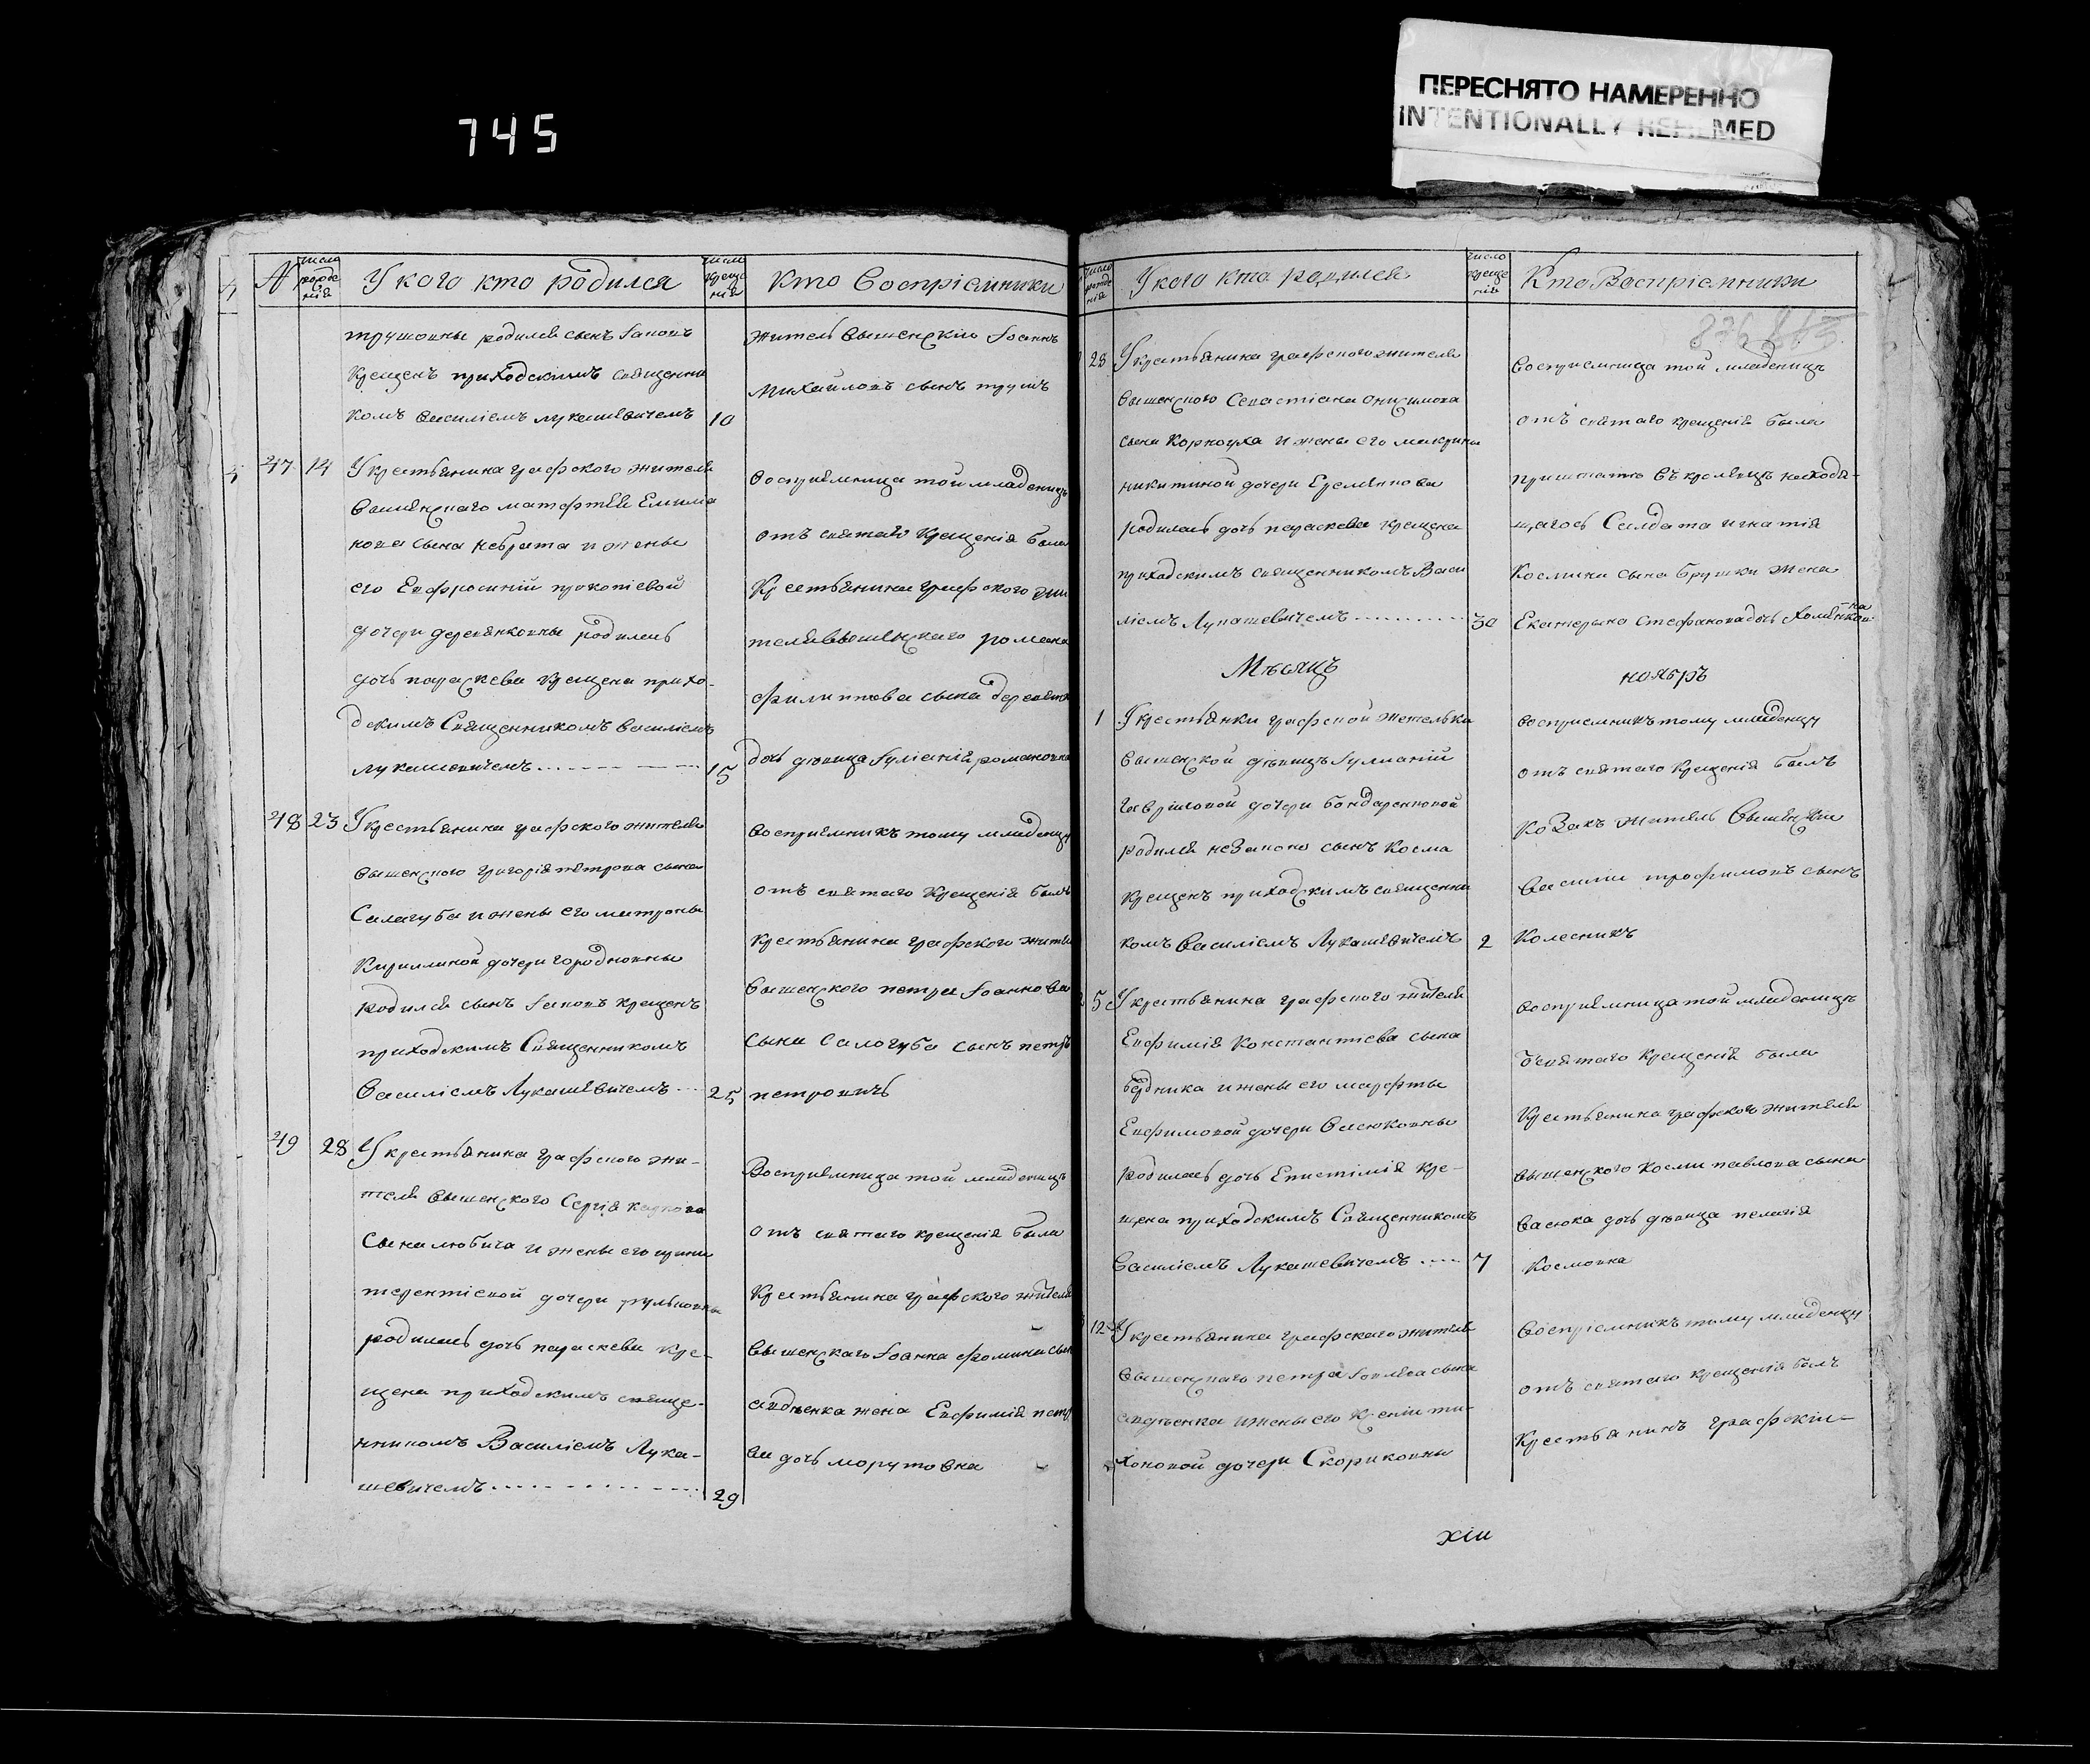 745
ПЕРЕСНЯТО НАМЕРЕННО
INTENTIONALLY REFILMED
№
число рожде нія
У кого кто родился
число креще нія
Кто воспріемники
трушовны родился сынъ Іаковъ
крещенъ приходскимъ священни
комъ василіемъ лукашевичемъ
10
житель вышенскій Іоаннъ
михайловъ сынъ трушъ
47
14
У крестьянина графского жителя
вышенскаго матфѣя Емилиа
нова сына небрата и жены
его Евфросиніи прокопіевой
дочери деревянковны родилась
дочь параскева крещена прихо-
дскимъ священникомъ василіемъ
лукашевичемъ
15
восприемница той младеницѣ
отъ святаго крещенія была
Крестьянина графского жи
теля вышенскаго романа
филиппова сына деревянк
дочь дѣвица Іуліанія романовна
48
23
У крестьянина графского жителя
вышенского григорія петрова сына
Салагуба и жены его матроны
Кирилиной дочери городновны
родился сынъ Іаковъ крещенъ
приходскимъ священникомъ
василіемъ Лукашевичемъ
25
восприемникъ тому младенцу
отъ святаго крещенія былъ
крестьянина графского жител
вышенского петра Іоаннова
сына Салогуба сынъ петръ
петровичъ
49
28
У крестьянина графского жи-
теля вышенского Сергія карпова
сына любича и жены его ирины
терентіевой дочери рульковны
родилась дочь параскева кре-
щена приходскимъ священ-
нникомъ Василіемъ Лука-
шевичемъ
29
Восприемница той младеницѣ
отъ святаго крещенія была
Крестьянина графского жителя
вышенскаго Іоанна фомина сын
авдѣенка жена Евфимія петр
ва дочь морутовна
число рожде нія
У кого кто родился
число креще нія
Кто Воспріемники
28
У крестьянина графского жителя
вышенского Севастіана онисимова
сына Корноуха и жены его макрины
никитиной дочери Еремѣнкова
родилась дочь параскева крещена
приходскимъ священникомъ Васи
ліемъ Лукашевичемъ
30
восприемница той младеницѣ
отъ святаго крещенія была
при штатѣ въ кролевцѣ находя-
щагось Салдата игнатія
Космина сына брушки жена
Екатерина Стефанова дочь
Мѣсяцъ
ноябръ
1
У крестьянки графской жительки
вышенской дѣвицѣ Іулианіи
гавриловой дочери бондаренковой
родился незаконо сынъ Косма
крещенъ приходскимъ священни
комъ василіемъ Лукашевичемъ
2
восприемникъ тому младенцу
отъ святаго крещенія былъ
козакъ житель вышенскій
василій трофимовъ сынъ
Колесникъ
5
У крестьянина графского жителя
Евфимія Константіева сына
будника и жены его марфты
Евфимовой дочери васюковны
родилась дочь Епистимія кре-
щена приходскимъ священникомъ
василіемъ Лукашевичемъ
7
восприемница той младеницѣ
о святаго крещенія была
Крестьянина графского жителя
вышенского косми павлова сына
васюка дочь дѣвица пелагія
Космовна
12
У крестьянина графскаго жителя
вышенскаго петра Іовлева сына
авдѣенка и жены его ксеніи ти-
хоновой дочери Скориковны
воспріемникъ тому младенцу
отъ святаго крещенія былъ
крестьянинъ графскій